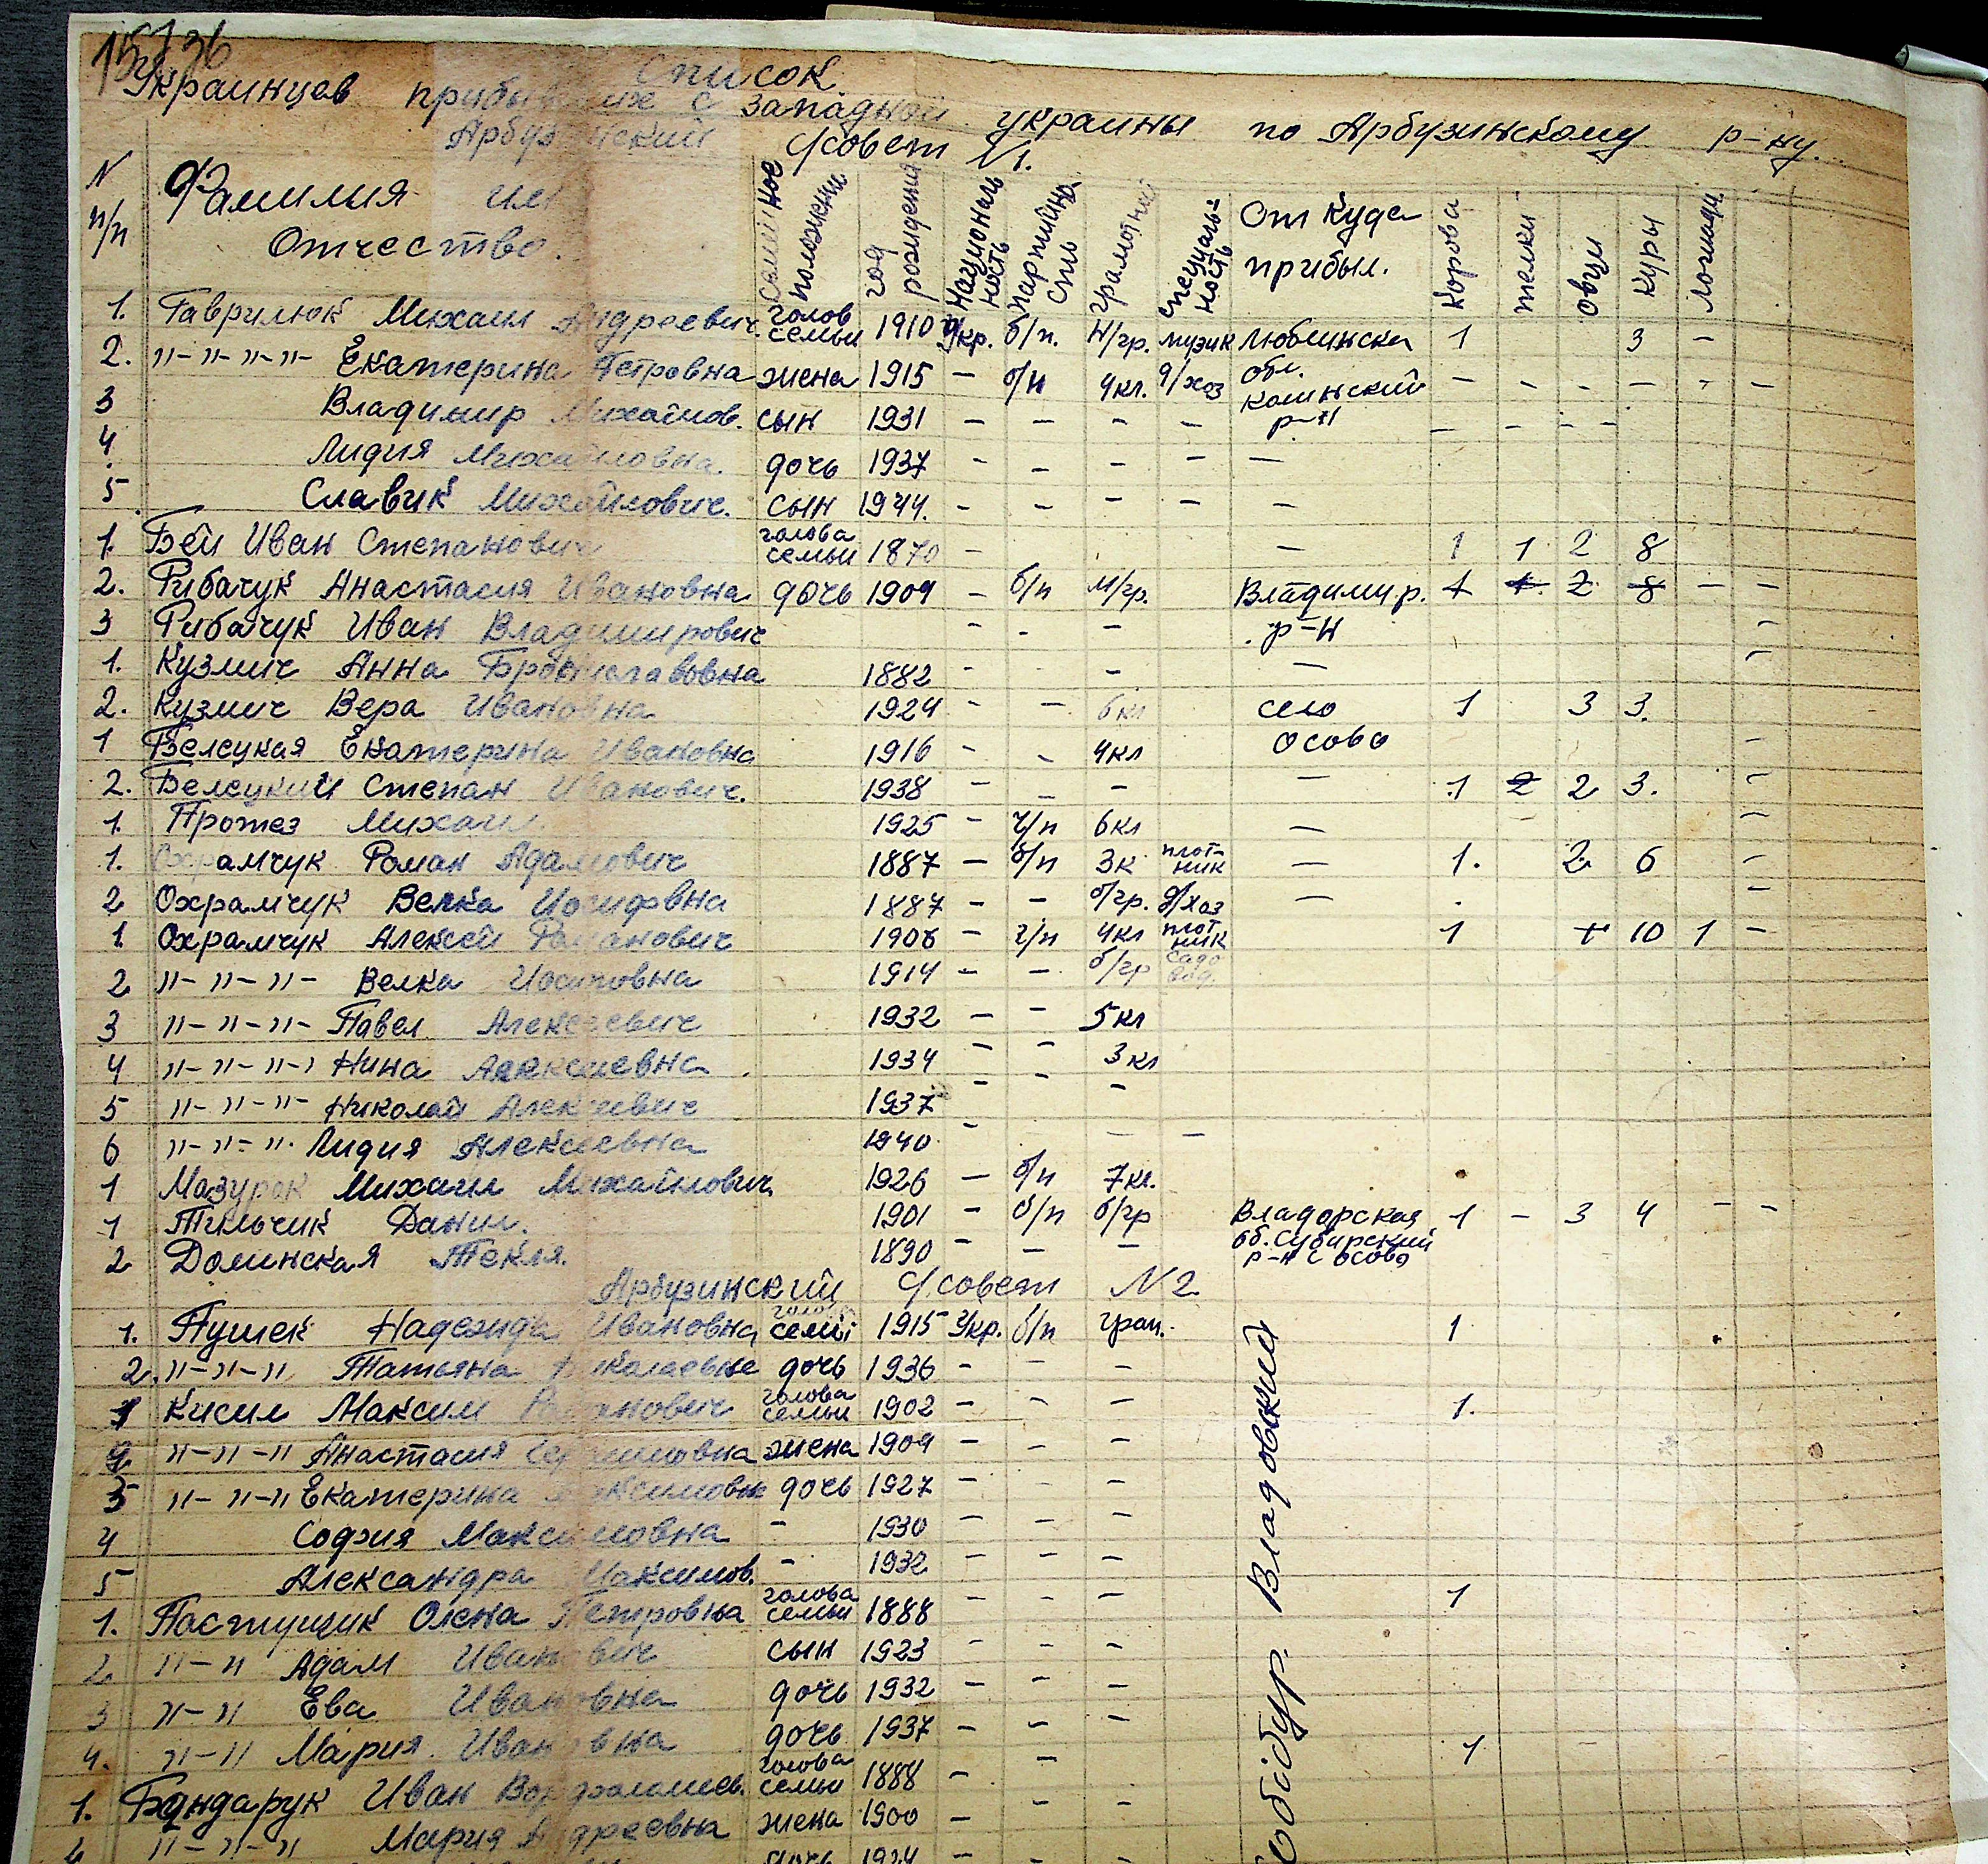 Список
Украинцев прибывшие с западной украины по Арбузинскому р-ну.
Арбузинский с/совет N1.
N п/п Фамилия имя Отчество. Семейное положение год рождения Национальность партийность грамотный специальность От куда прибыл. Корова телки овцы куры лошади
1. Гаврилюк Михаил Андреевич. голов семьи 1910 Укр. б/п. Н/гр. музик Люблинска 1 3 -
2. "-"-"-"- Екатерина Петровна жена 1915 - б/п 4кл. д/хоз обл. - - - - - -
3 Владимир Михайлов. сын 1931 - - - - р-н - - - -
4 Лидия Михайловна. дочь 1937 - - - - -
5 Славик Михайлович. сын 1944. - - - - -
1. Бей Иван Степанович голова семьи 1870 - - 1 1 2 8
2. Рибачук Анастасия Ивановна дочь 1909 - б/п М/гр. Владимир. 1 1 2 8 - -
3 Рибачук Иван Владимирович - - - р-н -
1. Кузмич Анна 1882 - - - -
2. Кузмич Вера Ивановна 1924 - - 6кл село 1 3 3.
1 Белецкая Екатерина Ивановна 1916 - - 4кл осова -
2. Белецкий Степан Иванович. 1938 - - - - 1 2 2 3. -
1. Протез Михаил 1925 - ч/п 6кл - -
1. Охрамчук Роман Адамович 1887 - б/п 3к плотник - 1. 2 6 -
2 Охрамчук Велка Иосифовна 1887 - - б/гр. д/хоз - -
1. Охрамчук Алексей Романович 1908 - ч/п 4кл плотник 1 10 1 -
2 "-"-"- Велка Иосиповна 1914 - - б/гр садовод.
3 "-"-"- Павел Алексеевич 1932 - - 5кл
4 "-"-"- Нина Алексеевна 1934 - - 3кл
5 "-"-"- Николай Алексеевич 1937 - - -
6 "-"-"- Лидия Алексеевна 1940 - - -
1 Мазурок Михаил Михайлович 1926 - б/п 7кл.
1 Тильчик Данил. 1901 - б/п б/гр Владорская 1 - 3 4 - -
2 Долинская Текля. 1890 - - - об. р-н с осова
Арбузинский с/совет N2
1. Пушек Надежда Ивановна голова семьи 1915 Укр. б/п грам. 1
2. "-"-" Татьяна Николаевна дочь 1936 - - -
1 Кисил Максим Романович голова семьи 1902 - - - 1.
2 "-"-" Анастасия жена 1909 - - -
3 "-"-" Екатерина Максимовн дочь 1927 - - -
4 София Максимовна - 1930 - - -
5 Александра Максимов. - 1932 - - -
1. Пастущик Олена Петровна голова семьи 1888 - - - 1
2 "-" Адам Иванович сын 1923 - - -
3 "-" Ева Ивановна дочь 1932 - - -
4. "-" Мария Ивановна дочь 1937 - - -
1. Бондарук Иван голова семьи 1888 - - 1
2 "-"-" Мария Андреевна жена 1900 - - -
дочь 1924 - - -
Владовский